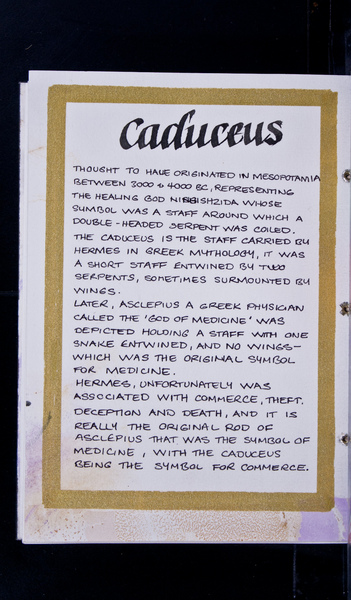 Caduceus
THOUGHT TO HAVE ORIGINATED IN MESOPOTAMIA
BETWEEN 3000 & 4000 BC, REPRESENTING
THE HEALING GOD NINGISHZIDA WHOSE
SYMBOL WAS A STAFF AROUND WHICH A
DOUBLE-HEADED SERPENT WAS COILED.
THE CADUCEUS IS THE STAFF CARRIED BY
HERMES IN GREEK MYTHOLOGY, IT WAS
A SHORT STAFF ENTWINED BY TWO
SERPENTS, SOMETIMES SURMOUNTED BY
WINGS.
LATER, ASCLEPIUS A GREEK PHYSICIAN
CALLED THE 'GOD OF MEDICINE' WAS
DEPICTED HOLDING A STAFF WITH ONE
SNAKE ENTWINED, AND NO WINGS-
WHICH WAS THE ORIGINAL SYMBOL
FOR MEDICINE.
HERMES, UNFORTUNATELY WAS
ASSOCIATED WITH COMMERCE, THEFT.
DECEPTION AND DEATH, AND IT IS
REALLY THE ORIGINAL ROD OF
ASCLEPIUS THAT WAS THE SYMBOL OF
MEDICINE, WITH THE CADUCEUS
BEING THE SYMBOL FOR COMMERCE.